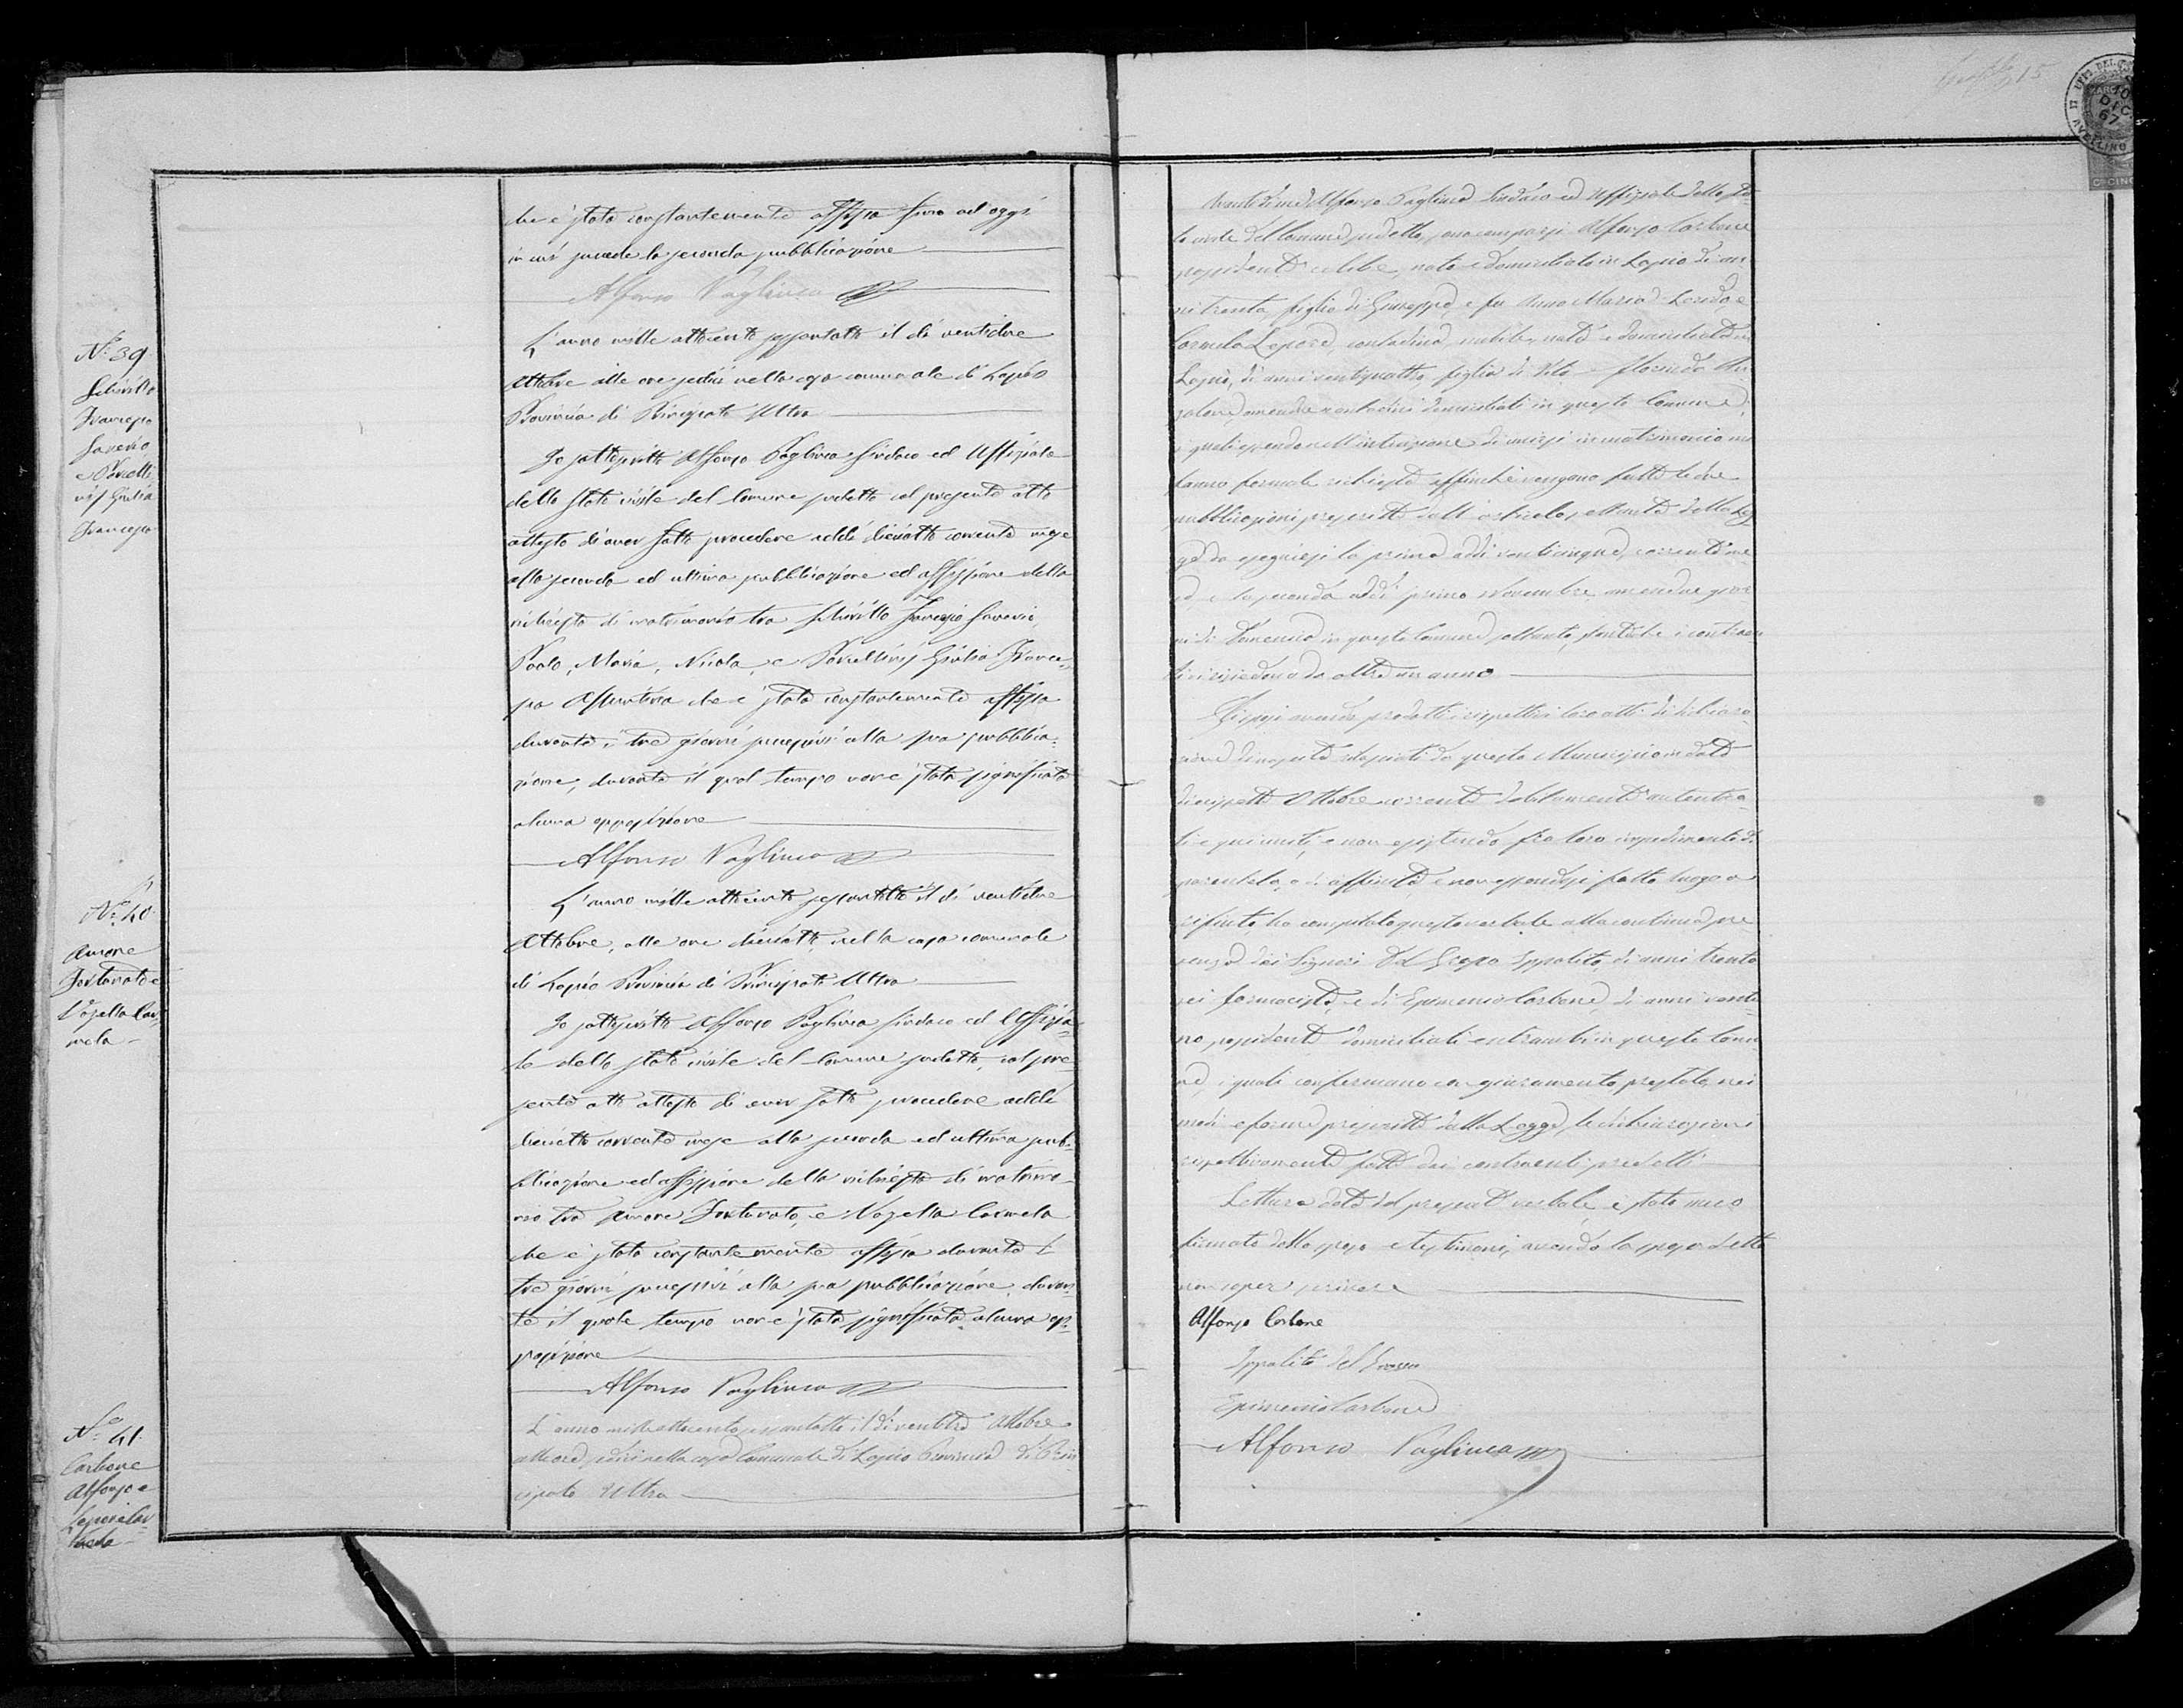 che è stata constantemente affissa sino ad oggi
in cui succede la seconda pubblicazione
Alfonso Pagliuca
N.º 39
Schirillo
Francesco
Saverio
e Porcelli
nis Giulia
Francesca
L'anno mille ottocento sessantotto il dì ventidue
Ottobre alle ore sedici nella casa comunale di Lapio
Provincia di Principato Ultra
Io sottoscritto Alfonso Pagliuca Sindaco ed Uffiziale
dello Stato civile del Comune sudetto col presente atto
attesto di aver fatto procedere addì dieciotto corrente mese
alla seconda ed ultima pubblicazione ed affissione della
richiesta di matrimonio tra Schirillo Francesco Saverio,
Paolo, Maria, Nicola, e Giulia France=
sca Assuntina che è stata constantemente affissa
durante i tre giorni successivi alla sua pubblica=
zione, durante il qual tempo non è stata significata
alcuna opposizione
Alfonso Pagliuca
N.º 40
Amore
Fortunato e
Vozella Car=
mela
L'anno mille ottocento sessantotto il dì ventidue
Ottobre, alle ore dieciotto nella casa comunale
di Lapio Provincia di Principato Ultra
Io sottoscritto Alfonso Pagliuca Sindaco ed Uffizia=
le dello stato civile del Comune sudetto, col pre=
sente atto attesto di aver fatto procedere addì
dieciotto corrente mese alla seconda ed ultima pub=
blicazione ed affissione della richiesta di matrimo=
nio tra Amore Fortunato, e Vozella Carmela
che è stata constantemente affissa durante i
tre giorni successivi alla sua pubblicazione, duran=
te il quale tempo non è stata significata alcuna op=
posizione
Alfonso Pagliuca
N.º 41.
Carbone
Alfonso e
Lepore Car=
mela
L'anno mille ottocento sessantotto il dì ventitre Ottobre
alle ore sedici nella casa Comunale di Lapio Provincia di Prin
cipato Ultra
15
10
DIC
67
AVELLINO
Avanti di me Alfonso Pagliuca Sindaco ed Uffiziale dello Sta=
to civile del Comune sudetto, sono comparsi Alfonso Carbone
possidente celibe, nato e domiciliato in Lapio di an=
ni trenta figlio di Giuseppe, e fu Anna Maria e
Carmela Lepore, contadina, nubile, nata e domiciliata in
Lapio, di anni ventiquattro figlia di Vito
amendue contadini domiciliati in questo Comune,
i quali essendo nell'intenzione di unirsi in matrimonio mi
fanno formale richiesta affinchè vengano fatte le due
pubblicazioni prescritte dall'articolo settanta della Leg
ge, da eseguirsi la prima addì venticinque, corrente me
se, e la seconda addì primo Novembre amendue gior
ni di Domenica in questo Comune soltanto, perchè i contraen
ti vi risiedono da oltre un anno
Gli sposi avendo prodotti i rispettivi loro atti di dichiara=
zione di nascita rilasciati da questo Municipio in data
diciassette Ottobre corrente debitamente autentica
ti e qui uniti, e non esistendo fra loro impedimento di
parentela, o di affinità, e non essendosi fatto luogo a
rifiuto ho compilato questo verbale alla continua pre
senza dei Signori Del Grosso Ippolito, di anni trenta
sei farmacista, e di Epimenio Carbone, di anni ventu
no, possidente domiciliati entrambi in questo Comu
ne, i quali confermano con giuramento prestato, nei
modi e forme prescritte dalla Legge, le dichiarazioni
rispettivamente fatte dai contraenti predetti
Lettura data del presente verbale, è stato meco
firmato dallo sposo e testimoni, avendo la sposa detto
non saper scrivere
Alfonso Carbone
Ippolito del Grosso
Epimenio Carbone
Alfonso Pagliuca